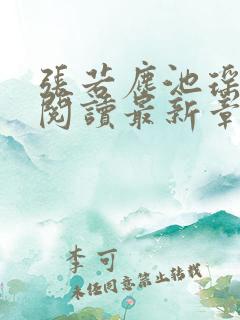 張若塵池瑤
閱讀最新章
李可
未經同意禁止轉載